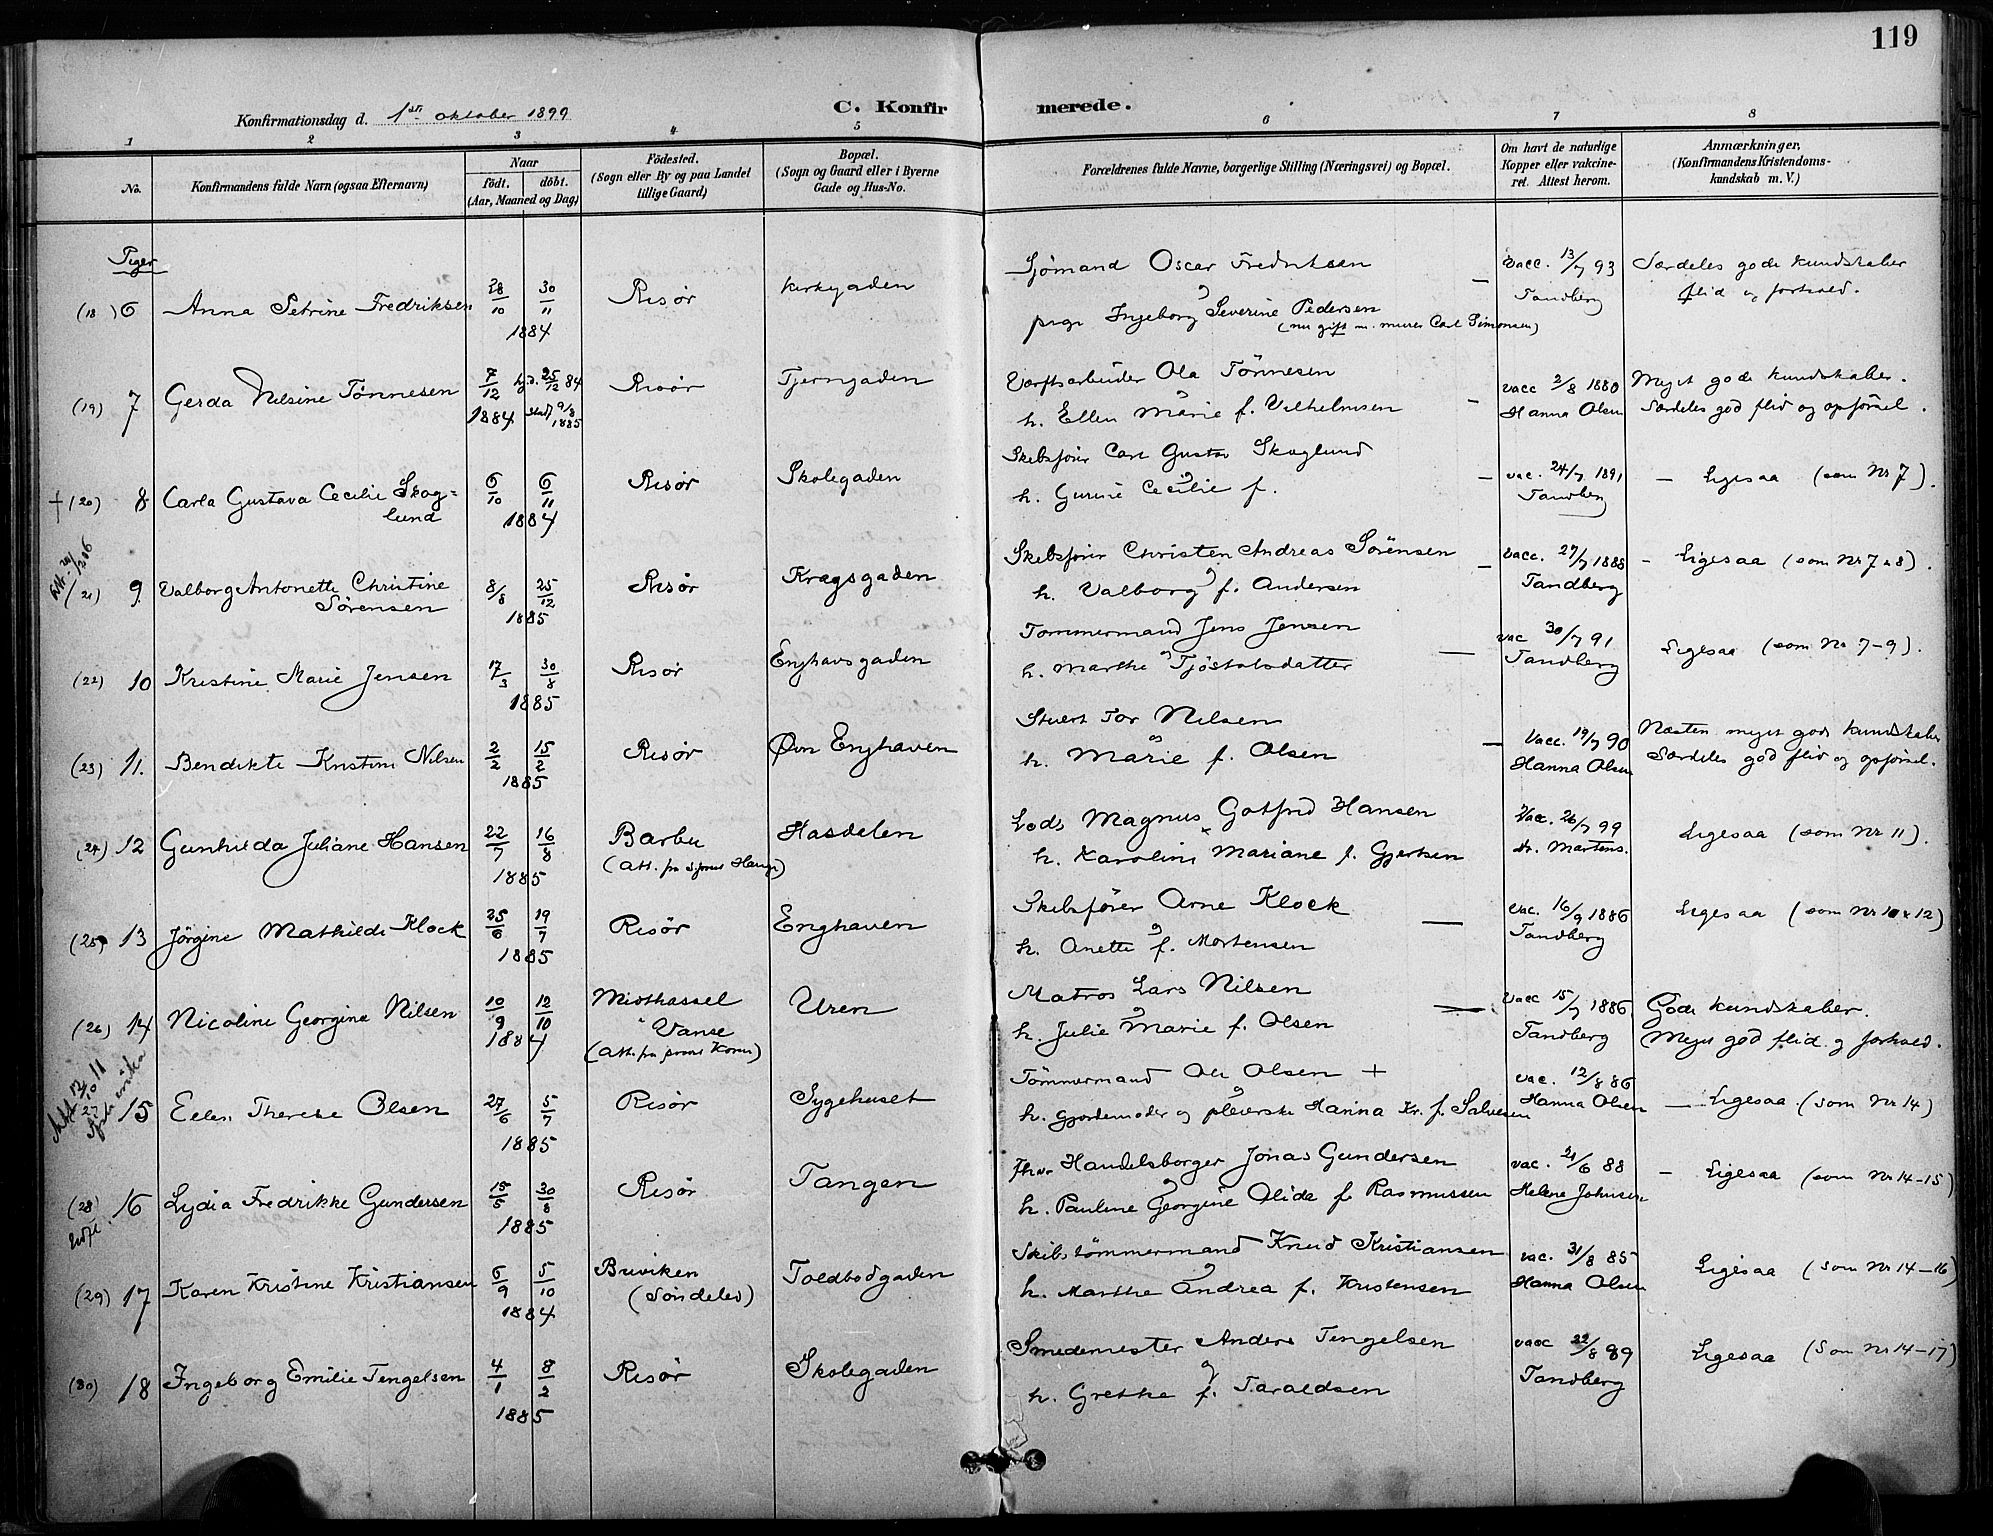 119
Konfirmationsdag d. 1ste oktober 1899
C. Konfirmerede.
1 2 3 4 5 6 7 8
No.
Konfirmandens fulde Navn (ogsaa Efternavn)
Naar
født. døbt.
(Aar, Maaned og Dag)
Fødested.
(Sogn eller By og paa Landet
tillige Gaard)
Bopæl.
(Sogn og Gaard eller i Byerne
Gade og Hus-No.
Forældrenes fulde Navne, borgerlige Stilling (Næringsvei) og Bopæl.
Om havt de naturlige
Kopper eller vakcine-
ret. Attest herom.
Anmærkninger.
(Konfirmandens Kristendoms-
kundskab m. V.)
Piger
(18) 6 Anna Petrine Fredriksen 28/10 30/11 1884 Risør Kirkegaden
Sjömand Oscar Fredriksen
og
pige Ingeborg Severine Pedersen
(nu gift m. murer Carl Simonsen)
vacc. 13/7 93
Tandberg
Særdeles gode kundskaber
flid og forhold.
(19) 7 Gerda Nilsine Tönnesen 7/12 1884 25/12 84 9/8 1885 Risør Tjerngaden
Værftsarbeider Ola Tönnesen
og
h. Ellen Marie f. Vilhelmsen
vacc 2/8 1880
Hanna Olsen
Meget gode kundskaber.
Særdeles god flid og opførsel.
+ (20) 8 Carla Gustava Cecilie Skog=
lund 6/10 6/11 1884 Risør Skolegaden
Skibsfører Carl Gustav Skoglund
og
h. Gurine Cecilie f.
vac. 24/7 1891
Tandberg
– Ligesaa (som Nr 7).
(21) 9. Valborg Antonette Christine
Sörensen 8/8 25/12 1885 Risør Kragsgaden
Skibsfører Christen Andreas Sörensen
og
h. Valborg f. Andersen
vacc. 27/7 1888
Tandberg
– Ligesaa (som Nr 7 & 8).
(22) 10 Kristine Marie Jensen 17/3 30/8 1885 Risør Enghavsgaden
Tømmermand Jens Jensen
og
h. Marthe Tjøstolsdatter
vac 30/7 91
Tandberg
Ligesaa (som Nr 7–9).
(23) 11. Bendikte Kristine Nilsen 2/2 15/2 1885 Risør Øvre Enghaven
Stuert Tor Nilsen
og
h. Marie f. Olsen
Vacc. 19/7 90
Hanna Olsen
Næsten meget gode kundskaber
Særdeles god flid og opførsel.
(24) 12 Gunhilda Juliane Hansen 22/7 16/8 1885 Barbu Hasdelen
Lods Magnus Gotfred Hansen
h. Karoline Mariane f. Gjertsen
Vacc. 26/7 99
dr. Martens.
Ligesaa (som Nr 11).
(25) 13 Jörgine Mathilde Klock 25/6 19/7 1885 Risør Enghaven
Skibsfører Arne Klock
og
h. Anette f. Mortensen
vac. 16/9 1886
Tandberg
Ligesaa (som Nr 11 & 12)
(26) 14 Nicoline Georgine Nilsen 10/9 12/10 1884 Midthassel
Vanse Uren
Matros Lars Nilsen
og
h. Julie Marie f. Olsen
Vacc 15/7 1886
Tandberg
Gode kundskaber.
Meget god flid og forhold.
27 15 Ellen Therese Olsen 27/6 5/7 1885 Risør Sygehuset
Tömmermand Ole Olsen +
og
h. gjordemoder og pleierske Hanna Kr. f. Salvesen
vac. 12/8 86
Hanna Olsen
– Ligesaa (som Nr 14)
(28) 16 Lydia Fredrikke Gundersen 15/5 30/8 1885 Risør Tangen
Handelsborger Jonas Gundersen
og
h. Pauline Georgine Alida f. Rasmussen
vac. 21/6 88
Helene Johnsen
– Ligesaa (som Nr 14–15)
(29) 17 Karen Kristine Kristiansen 6/9 5/10 1884 Buviken
(Söndeled) Toldbodgaden
Skibstömmermand Knud Kristiansen
og
h. Marthe Andrea f. Kristensen
vac. 31/8 85
Hanna Olsen
Ligesaa (som Nr 14–16)
(30) 18 Ingeborg Emilie Tengelsen 4/1 8/2 1885 Risør Skolegaden
Smedemester Anders Tengelsen
og
h. Grethe f. Taraldsen
vacc 22/8 89
Tandberg
Ligesaa (Som Nr 14–17)